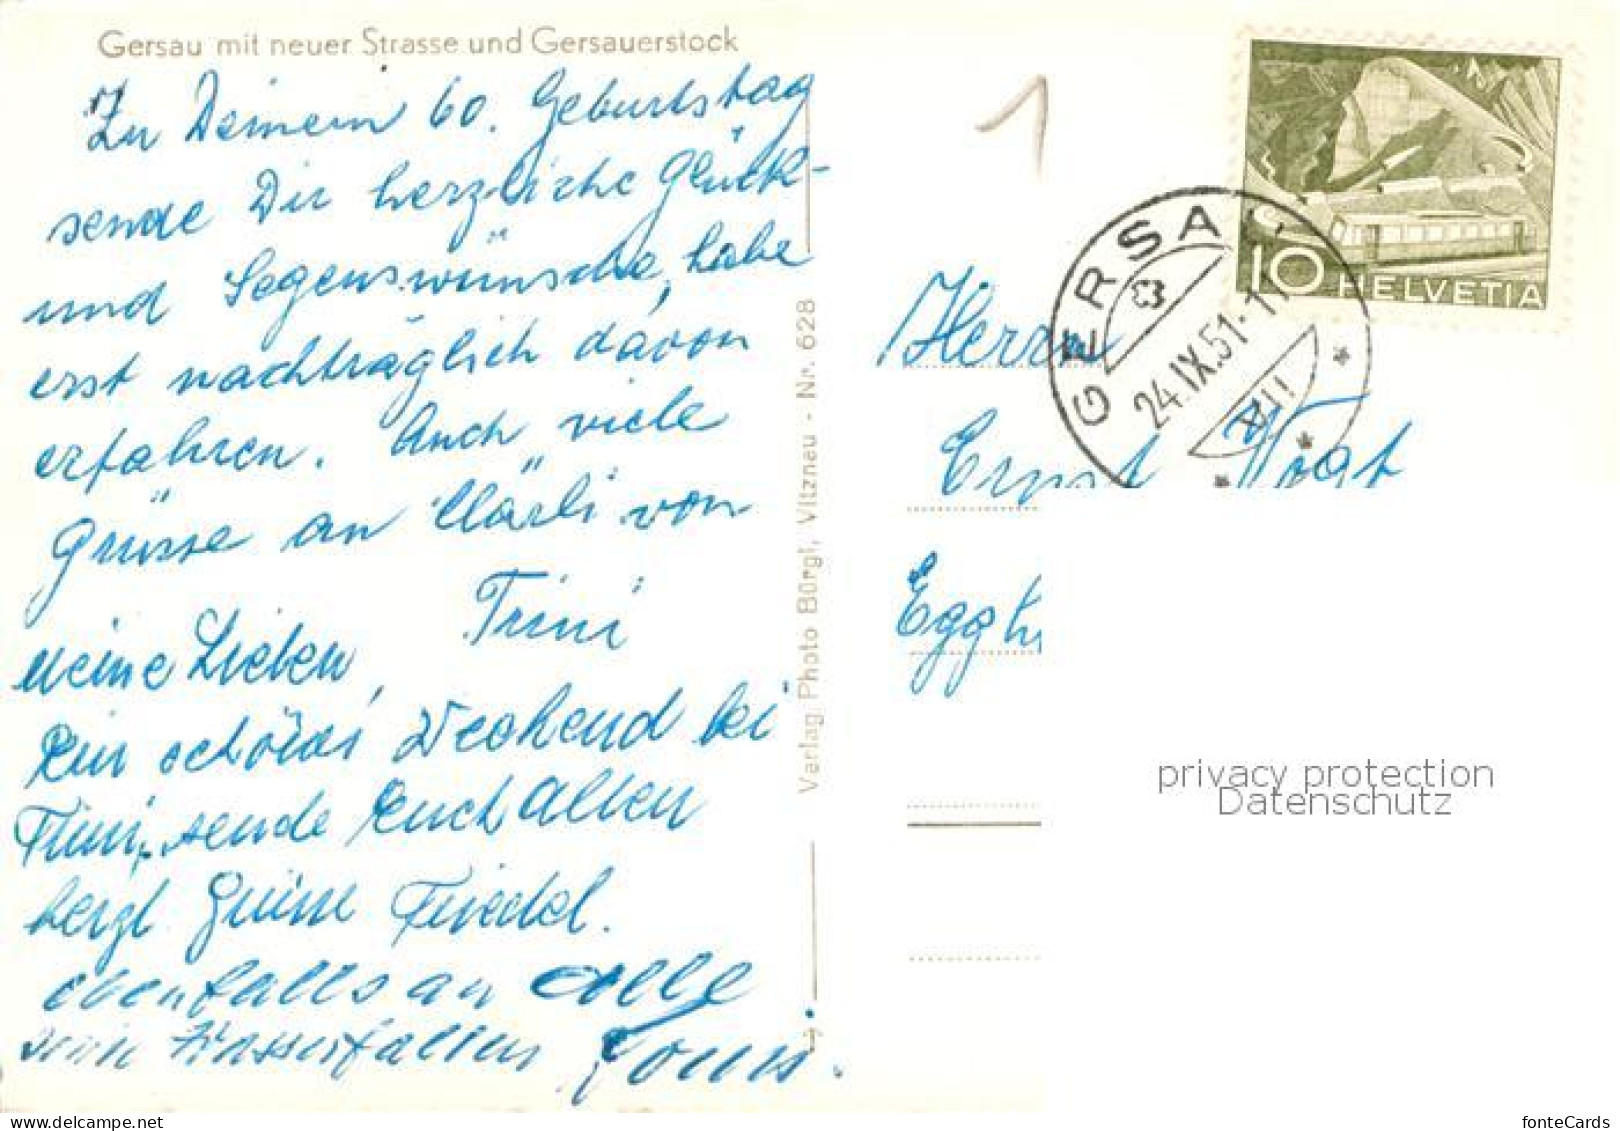 Gersau mit neuer Strasse und Gersauerstock
Zu Deinem 60. Geburtstag
sende Dir herzliche Glück-
und Segenswünsche, habe
erst nachträglich davon
erfahren. Auch viele
Grüsse an Märli von
Trini
meine Lieben,
Ein schönes Weekend bei
Trini, sende Euch Allen
herzl Grüsse Friedel.
ebenfalls an alle
Verlag Photo Bürgi, Vitznau - Nr. 628
1
10 HELVETIA
GERSAU
24.IX.51-11
VIII
Herrn
Ernst Vogt
Egg
privacy protection
Datenschutz
fonteCards